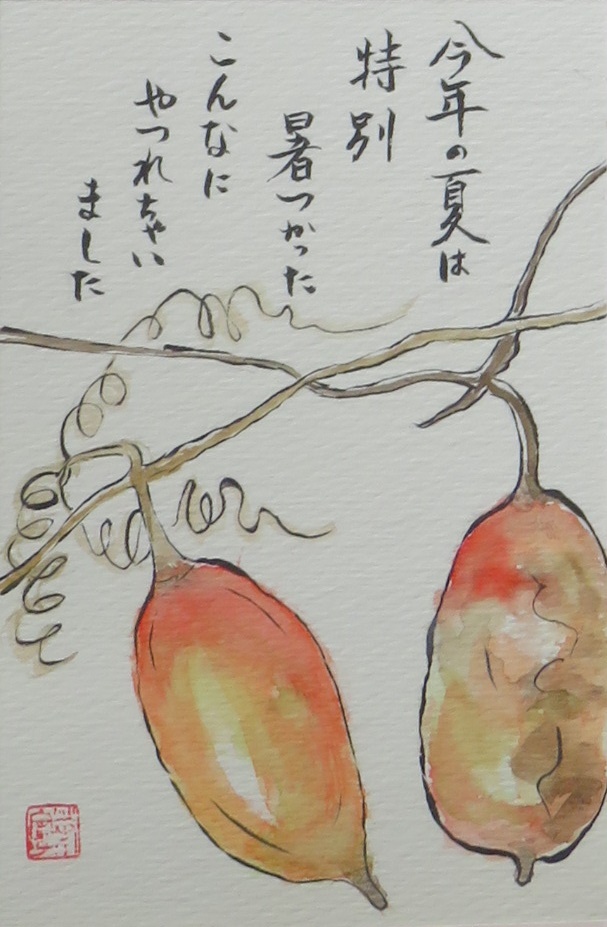 今年の夏は
特別
暑つかった
こんなに
やつれちゃい
ました